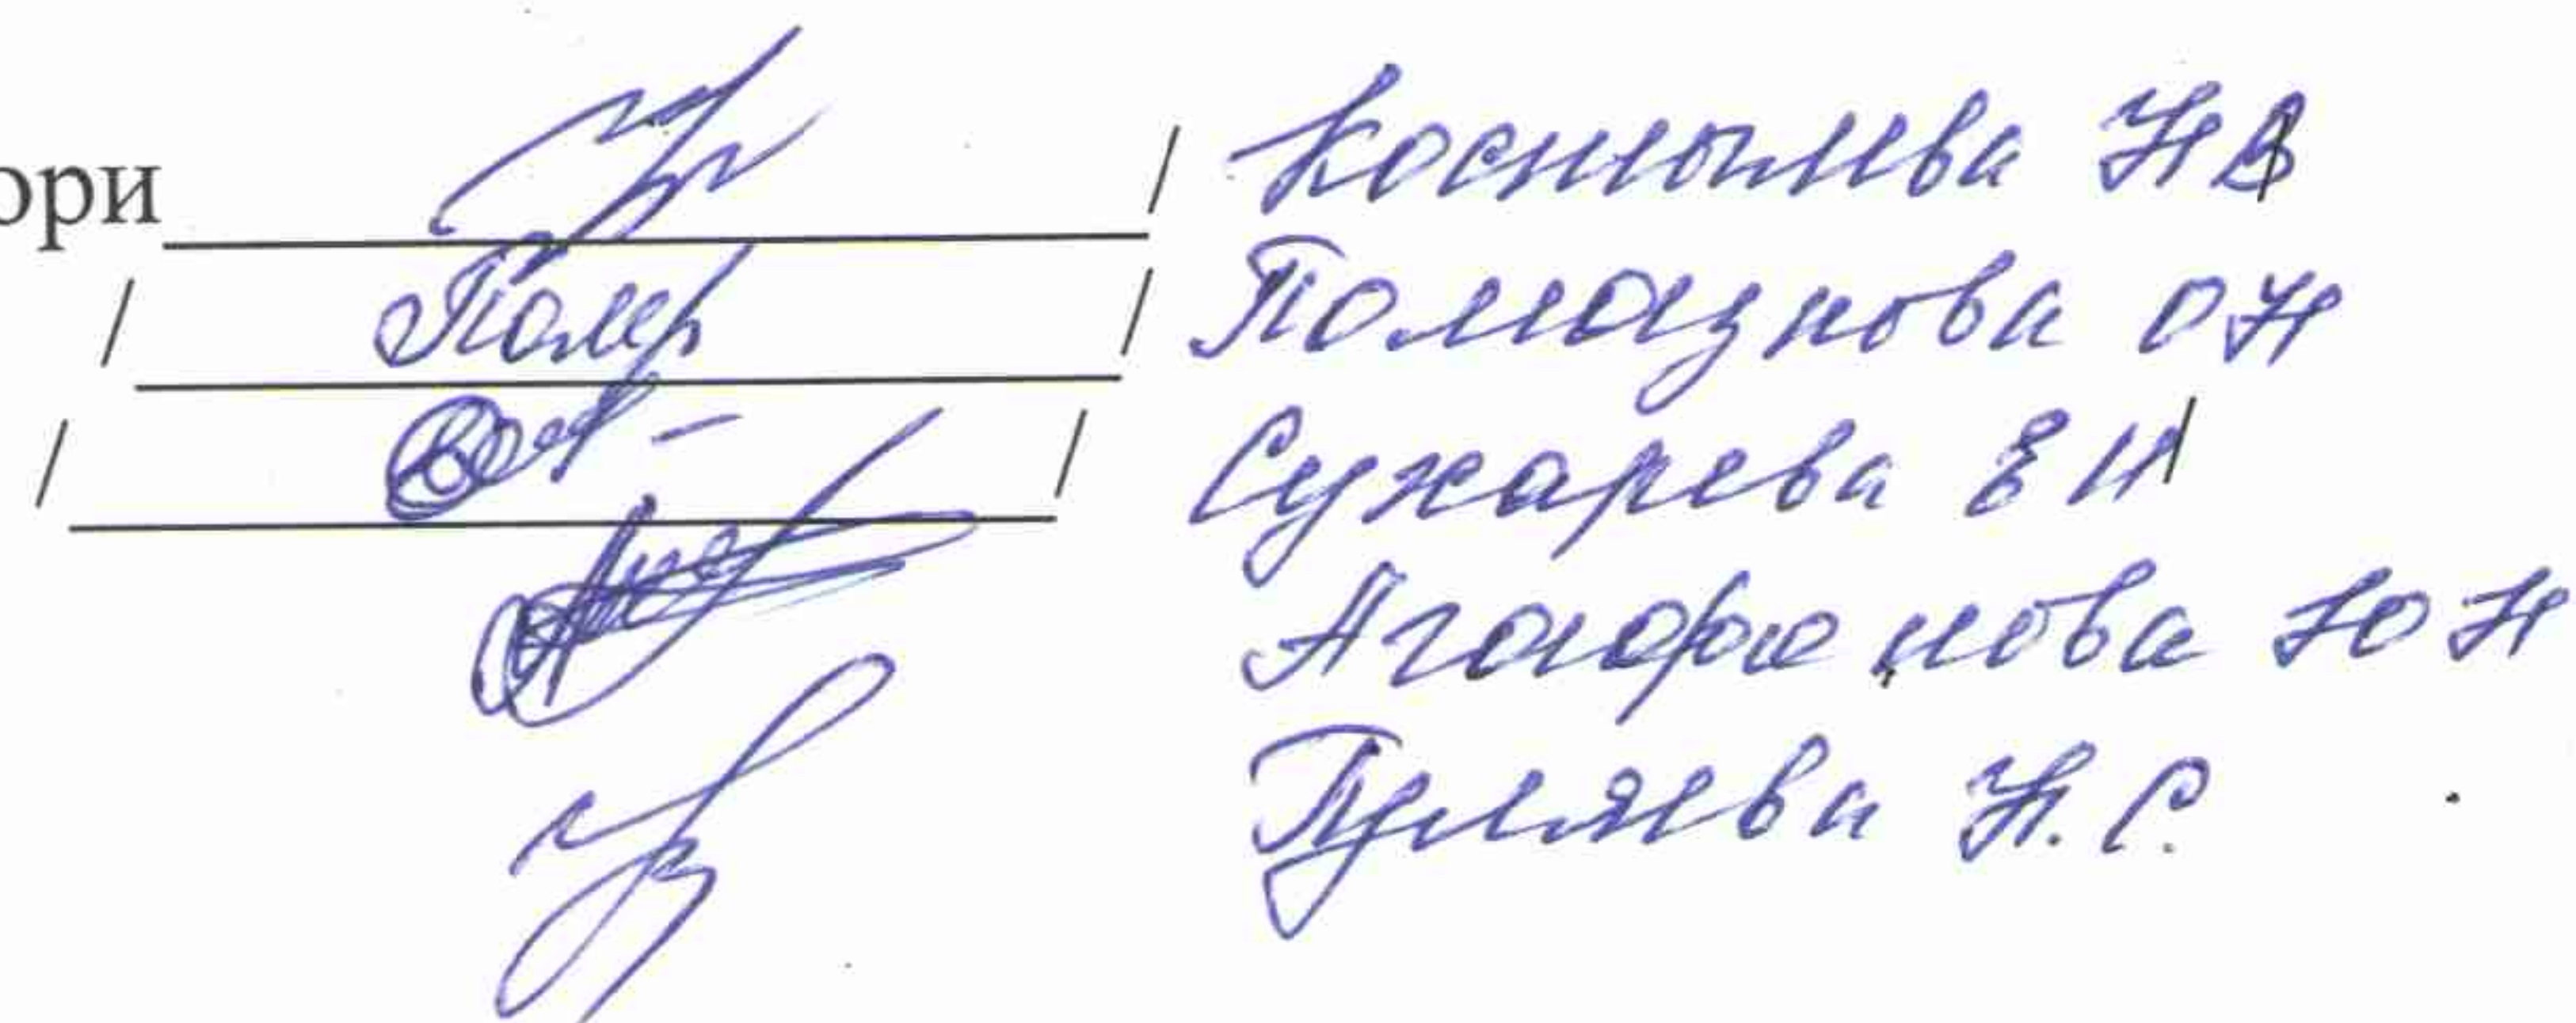 ори / Костылева Н В /
/ Полер / Помазнова О Н
/ / Сухарева Е И /
Агафонова Ю Н
Гуляева Н. С.